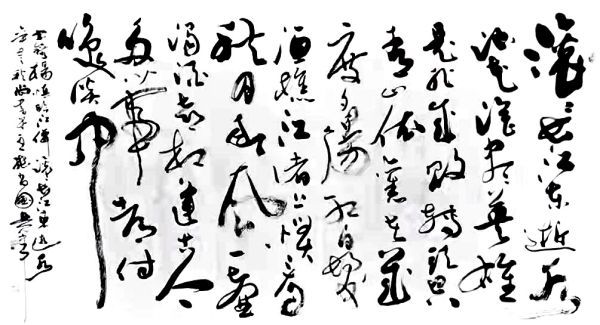 滚滚长江东逝水
浪花淘尽英雄
是非成败转头空
青山依旧在几
度夕阳红白发
渔樵江渚上惯看
秋月春风一壶
浊酒喜相逢古今
多少事都付
笑谈中
杨慎临江仙滚滚长江东逝水